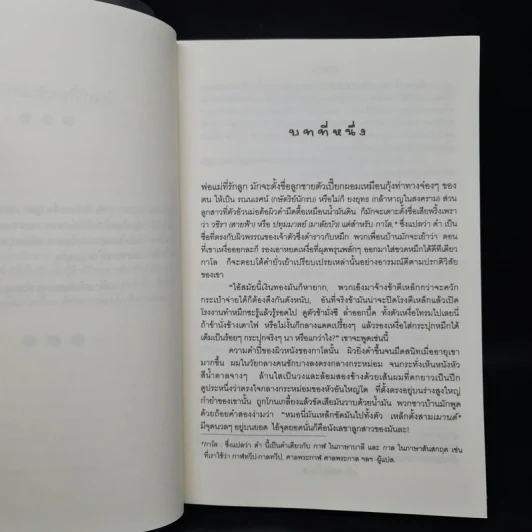 บทที่หนึ่ง
พ่อแม่ที่รักลูก มักจะตั้งชื่อลูกชายตัวเปี๊ยกผอมเหมือนกุ้งท่าทางจ๋องๆ ของ
ตน ให้เป็น รณนเรศน์ (กษัตริย์นักรบ) หรือไม่ก็ ยงยุทธ (กล้าหาญในสงคราม) ส่วน
ลูกสาวที่ตัวอ้วนม่อต้อผิวดำมืดตื้อเหมือนน้ำมันดิน ก็มักจะเดาะตั้งชื่อเสียพริ้งเพรา
ว่า วชิรา (สายฟ้า) หรือ ปทุมมาลย์ (มาลัยบัว) แต่สำหรับ กาโล,* ซึ่งแปลว่า ดำ เป็น
ชื่อที่ตรงกับผิวพรรณของเจ้าตัวซึ่งดำราวกับหมึก พวกเพื่อนบ้านมักจะเย้าว่า ตอน
ที่เขาเหงื่อออกละก็ รองเอาหยดเหงื่อที่ผุดพรูนพลั่กๆ ออกมาใส่ขวดหมึกได้ดีทีเดียว
กาโล ก็จะตอบโต้คำยั่วเย้าเปรียบเปรยเหล่านั้นอย่างอารมณ์ดีตามปรกติวิสัย
ของเขา
"ไอ้สมัยนี้เงินทองมันก็หายาก พวกเอ็งมาจ้างข้าตีเหล็กกว่าจะควัก
กระเป๋าจ่ายได้ก็ต้องดึงกันดังหนับ อันที่จริงข้ามันน่าจะปิดโรงตีเหล็กแล้วเปิด
โรงงานทำหมึกซะรู้แล้วรู้รอดไป ดูตัวข้ามังซี ล่ำออกปื้ด ทั้งตัวเหงื่อโทรมไปเลยนี่
ถ้าข้านั่งข้างเตาไฟ หรือไม่งั้นก็กลางแดดเปรี้ยงๆ แล้วรองเหงื่อใส่กระปุกหมึกได้
เต็มเป็นร้อยๆ กระปุกจริงๆ นา หรือแกว่าไง?" เขาจะพูดเช่นนี้
ความดำปี๋ของผิวหนังของกาโลนั้น ผิวยิ่งดำขึ้นจนมืดสนิทเมื่ออายุเขา
มากขึ้น ผมในวัยกลางคนชักบางลงตรงกลางกระหม่อม จนกระทั่งเห็นหนังหัว
สีน้ำตาลจางๆ ล้านใสเป็นวงและล้อมสองข้างด้วยเส้นผมที่ดกยาวเป็นปีก
ดูประหนึ่งว่าตรงใจกลางกระหม่อมของหัวอันใหญ่โต ที่ตั้งตรงอยู่บนร่างสูงใหญ่
กำยำของเขานั้น ถูกโกนเกลี้ยงแล้วขัดเสียมันวาบด้วยน้ำมัน พวกชาวบ้านมักพูด
ด้วยถ้อยคำสองง่ามว่า "หมอนี่มันเหล็กขัดมันไปทั้งตัว เหล็กตั้งสามเมานด์*
มีจุดนวลๆ อยู่บนยอด ไอ้จุดยอดนั่นก็คือนังเลขาลูกสาวของมันละ!
*กาโล : ซึ่งแปลว่า ดำ นี้เป็นคำเดียวกับ กาฬ ในภาษาบาลี และ กาล ในภาษาสันสกฤต เช่น
ที่เราใช้ว่า กาฬทวีป-กาลทวีป, ศาลพระกาฬ ศาลพระกาล ฯลฯ -ผู้แปล.